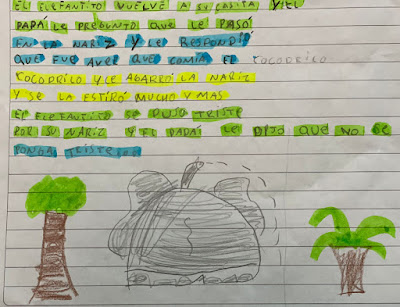 EL ELEFANTITO VUELVE A SU CASITA Y EL
PAPÁ LE PREGUNTO QUE LE PASÓ
EN LA NARIZ Y LE RESPONDIÓ
QUE FUE A VER QUE COMIA EL COCODRILO
COCODRILO Y LE AGARRÓ LA NARIZ
Y SE LA ESTIRÓ MUCHO Y MAS
EL ELEFANTITO SE PUSO TRISTE
POR SU NARIZ Y EL PAPÁ LE DIJO QUE NO SE
PONGA TRISTE